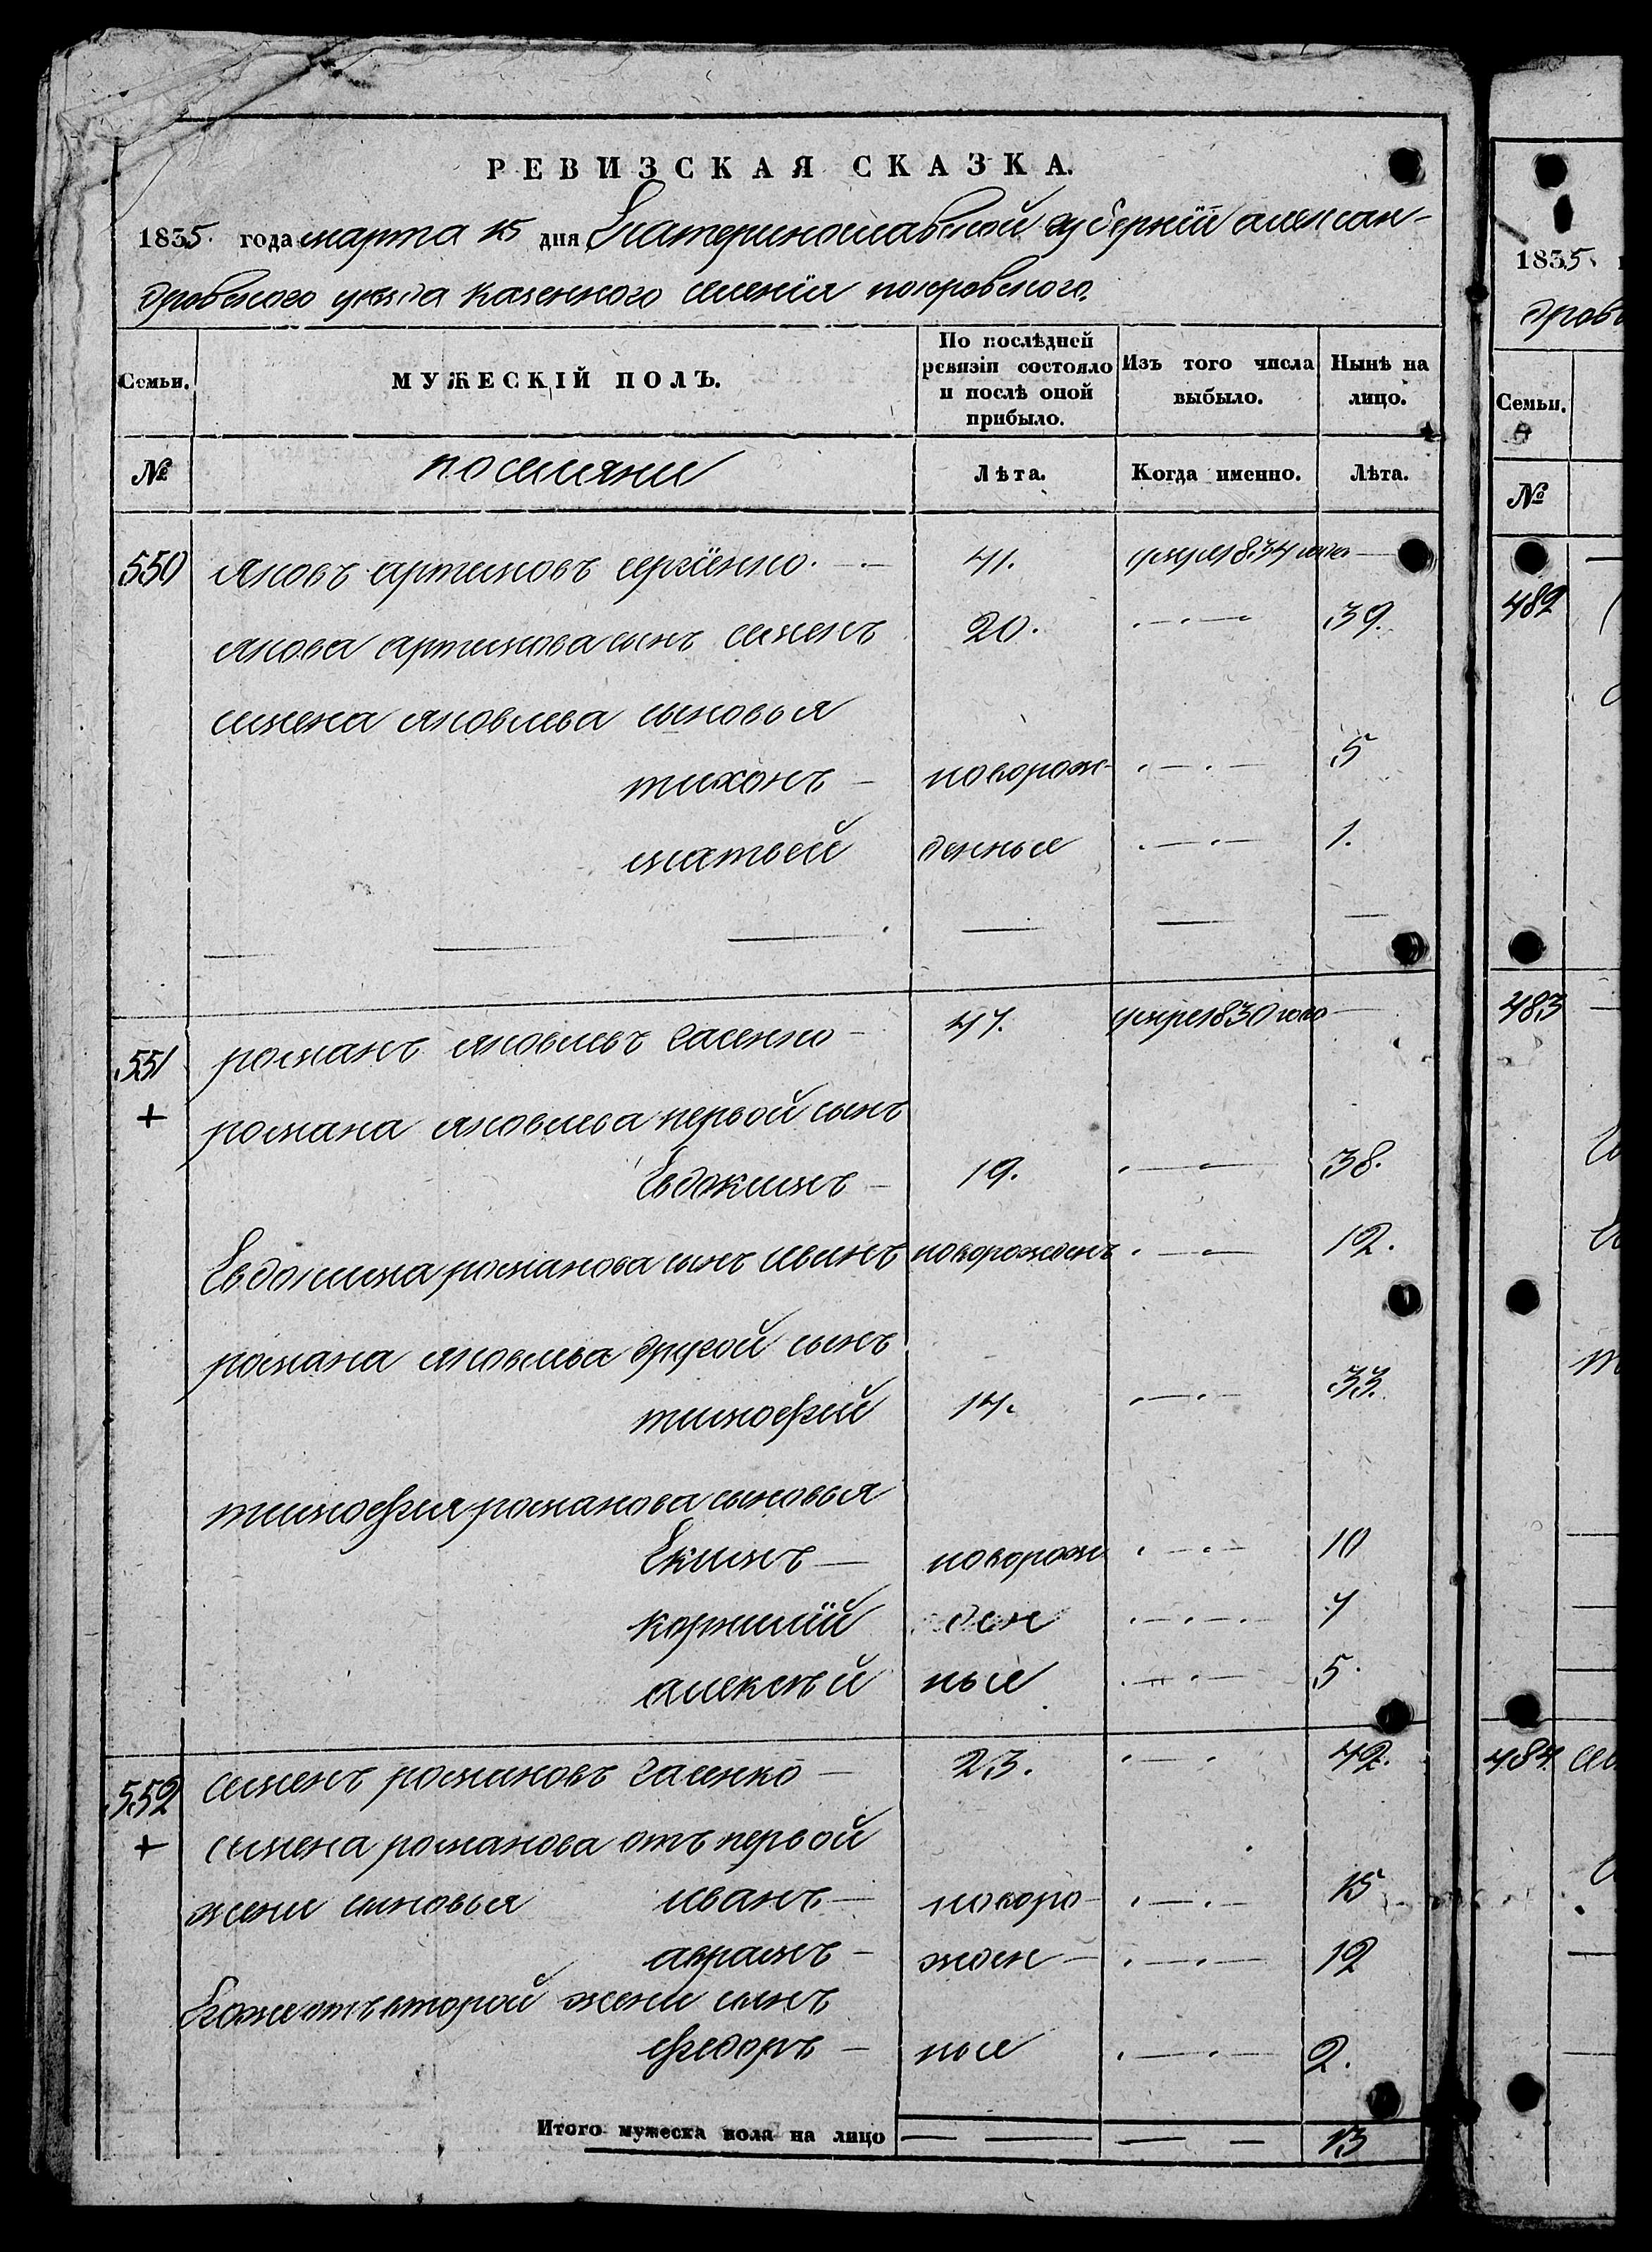 РЕВИЗСКАЯ СКАЗКА.
1835. года марта 15 дня Екатеринославской губернїи алексан-
дровского уезда казенного селенїя покровского.
Семьи. МУЖЕСКІЙ ПОЛЪ. По послѣдней ревизіи состояло и послѣ оной прибыло. Изъ того числа выбыло. Нынѣ на лицо.
№ поселяни Лѣта. Когда именно. Лѣта.
550 Яковъ артимовъ сергїенко. 41. умре 1834 года
якова артимова сынъ семенъ 20. 39.
симена яковлева сыновья
тихонъ новорож- 5
матвей денные 1.
551 романъ яковлевъ гасенко 47. умре 1830 года
+ романа яковлева первой сынъ
Евдокимъ 19. 38.
Евдокима романова сынъ иванъ новорожденъ 12.
романа яковлева другой сынъ
тимофей 14. 33.
тимофея романова сыновья
Екимъ новорож 10
корнилїй ден 7
алексѣй ные 5.
552 семенъ романовъ гасенко 23. 42.
+ симена романова отъ первой
жени сыновья иванъ новоро 15
аврамъ жден 12
Егоже отъ второй жени сынъ
федоръ ные 2.
Итого мужеска пола на лицо 13
1835.
дров
Семьи.
№
482
483
484